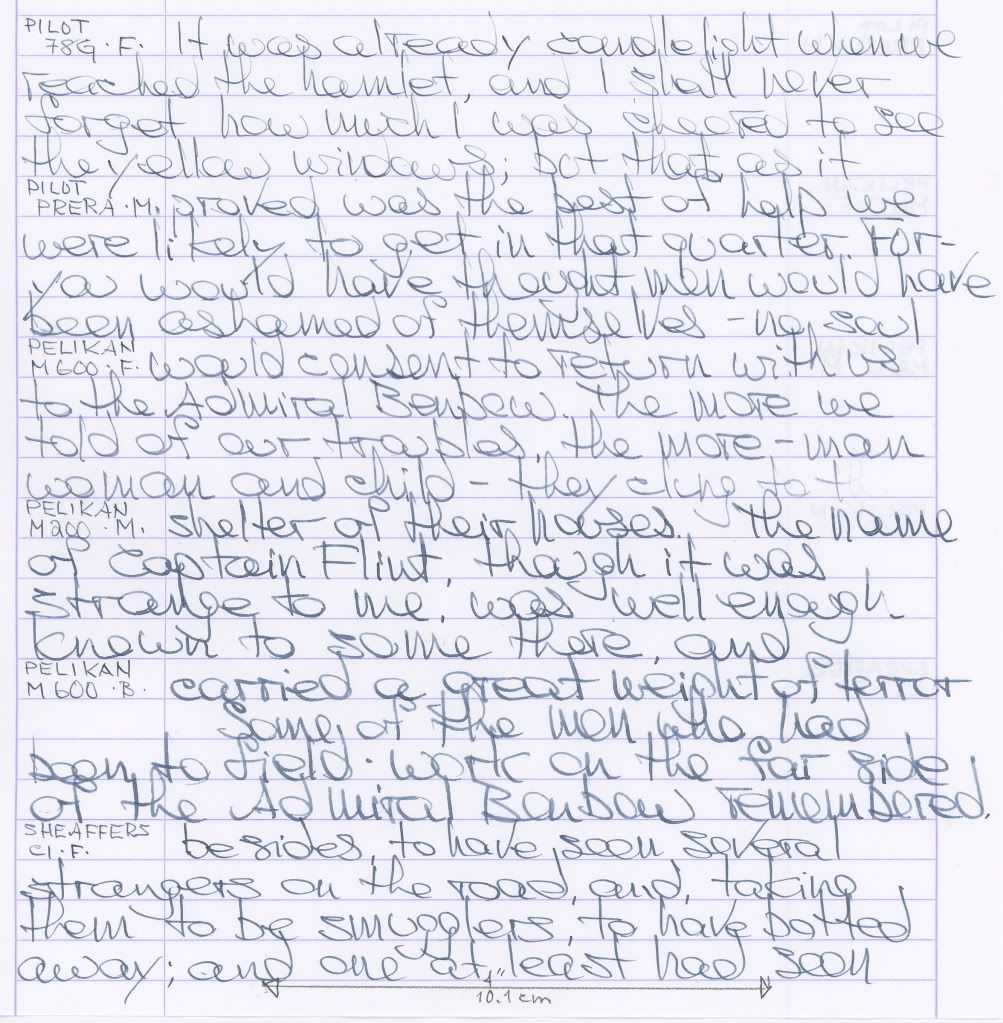 PILOT
78G · F. It was already candlelight when we
reached the hamlet, and I shall never
forget how much I was cheered to see
the yellow windows; but that, as it
PILOT
PRERA · M. proved was the best of help we
were likely to get in that quarter. For-
you would have thought men would have
been ashamed of themselves - no soul
PELIKAN
M600 · F. would consent to return with us
to the Admiral Benbow. The more we
told of our troubles, the more - man
woman and child - they clung to th
PELIKAN
M200 · M. shelter of their houses. The name
of Captain Flint, though it was
strange to me, was well enough
known to some there, and
PELIKAN
M600 · B. carried a great weight of terror
Some of the men who had
been to field-work on the far side
of the Admiral Benbow remembered,
SHEAFFERS
CI. F. besides, to have seen several
strangers on the road, and, taking
them to be smugglers, to have bolted
away; and one at least had seen
10.1 cm